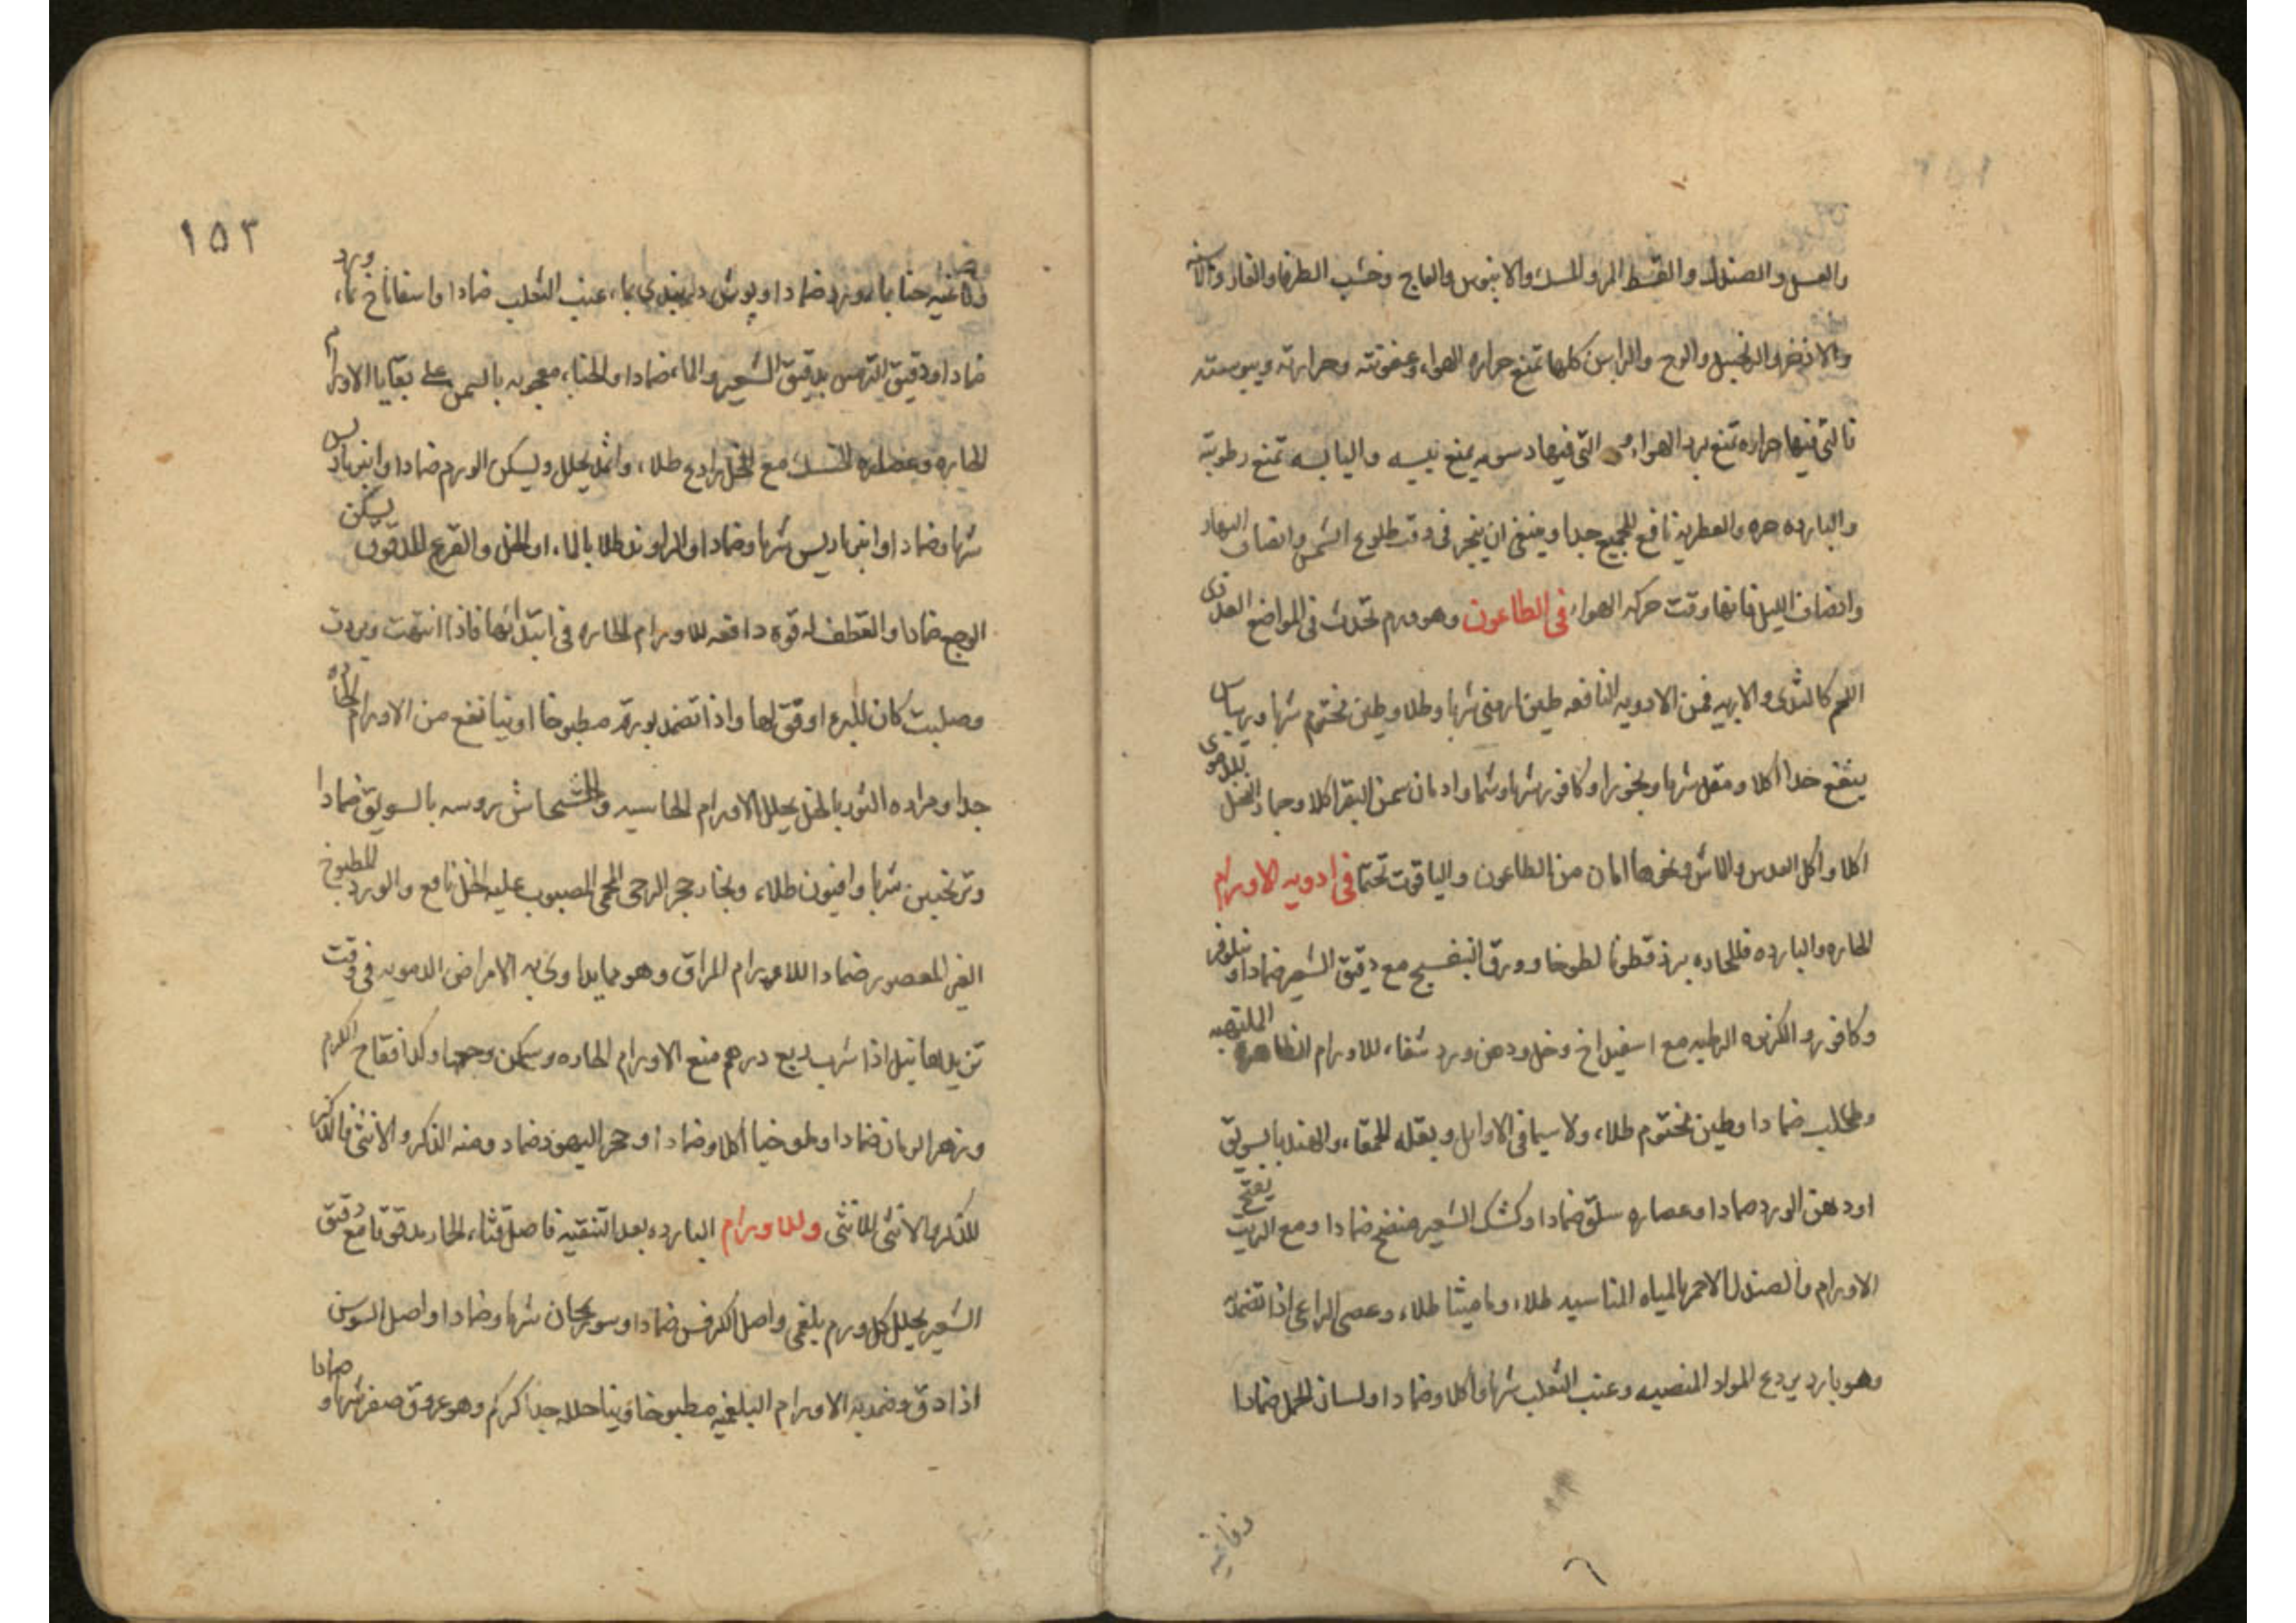 والعسل والصندل والقسط المر والمسك والابنوس والعاج وخشب الطرفا والغار والاشنه
والاذخر والزنجبيل والوج والراسن كلها تمنع حراره الهواء وعفونته وحرارته ويبوسته
فالتى فيها حراره تمنع برد الهواء والتى فيها دسومه يمنع يبسه واليابسه تمنع رطوبته
والبارده حره والعطريه نافع للجميع جدا وينبغى ان يبخر فى وقت طلوع الشمس وانصاف النهار
وانصاف الليل فانها وقت حركه الهواء فى الطاعون وهو ورم تحدث فى المواضع الغددى
اللحم كالثدى والابيه فمن الادويه النافعه طين ارمنى شربا وطلا وطين مختوم شربا وريباس
ينفع جدا اكلا ومقل شربا وبخورا وكافور شربا وشما وادمان سمن البقر اكلا وجمار النخل للدموى
اكلا واكل العدس والماش ونحوها امان من الطاعون والياقوت تختما فى ادويه الاورام
الحاره والبارده فللحاره بزر قطونا لطوخا وورق البنفسج مع دقيق الشعير ضمادا ونيلوفر
وكافور والكزبره الرطبه مع اسفيداخ وخل ودهن ورد شفاء للاورام الظاهره الملتهبه
وطحلب ضمادا وطين مختوم طلاء ولا سيما فى الاوايل وبقله للحمقاء والهندبا بالسويق
او دهن الورد ضمادا وعصاره سلق ضمادا وكشك الشعير منضج ضمادا ومع الزيت يفتح
الاورام والصندل الاحمر بالمياه المناسبه طلاء وماميثا طلاء وعصى الراعى اذا تضمد به
وهو بارد يردع المواد المنصبه وعنب الثعلب شربا واكلا وضمادا ولسان الحمل ضمادا
وفاغيه
١٥٣
وفاغيه حنا بماء ورد ضمادا وبوش دربندى بماء عنب الثعلب ضمادا واسفاناخ بماء ورد
ضمادا ودقيق الترمس بدقيق الشعير والماء ضمادا والحناء معجونه بالسمن على بقايا الاورام
الحاره وعصاره الحسك مع الخل رادع طلاء واثمد يحلل ويسكن الورم ضمادا وانبرباريس
شربا وضمادا وانبرباريس شربا وضمادا والراوند طلا بالماء او الخل والقرع المدقوق يسكن
الوجع ضمادا والقطف له قوه دافعه للاورام الحاره فى ابتدائها فاذا انتهت وبردت
وصلبت كان المبرء اوفق لها واذا تضمد بورقه مطبوخا او نيا نفع من الاورام الحاره
جدا ومراره الثور بالخل يحلل الاورام الجاسيه والخشخاش بروسه بالسويق ضمادا
وترنجبين شربا وافيون طلاء وبخار حجر الرحى المحمى المصبوب عليه الخل نافع والورد المطبوخ
الغير المعصور ضمادا للاورام المراق وهو مما يداوى به الامراض الدمويه فى وقت
تزيدها نيل اذا شرب ربع درهم منع الاورام الحاره وسكن وجعها وكذا فقاح الكرم
وزهر الرمان ضمادا وملوخيا اكلا وضمادا وحجر اليهود ضماد ومنه الذكر والانثى فالذكر
للذكر والانثى للانثى وللاورام البارده بعد التنقيه فاصل قثاء الحمار مدقوقا مع دقيق
الشعير يحلل كل ورم بلغمى واصل الكرفس ضمادا وسورنجان شربا وضمادا واصل السوسن
اذا دق وضمد به الاورام البلغميه مطبوخا ونيا حلله جدا كركم وهو عروق صفر شربا وضمادا